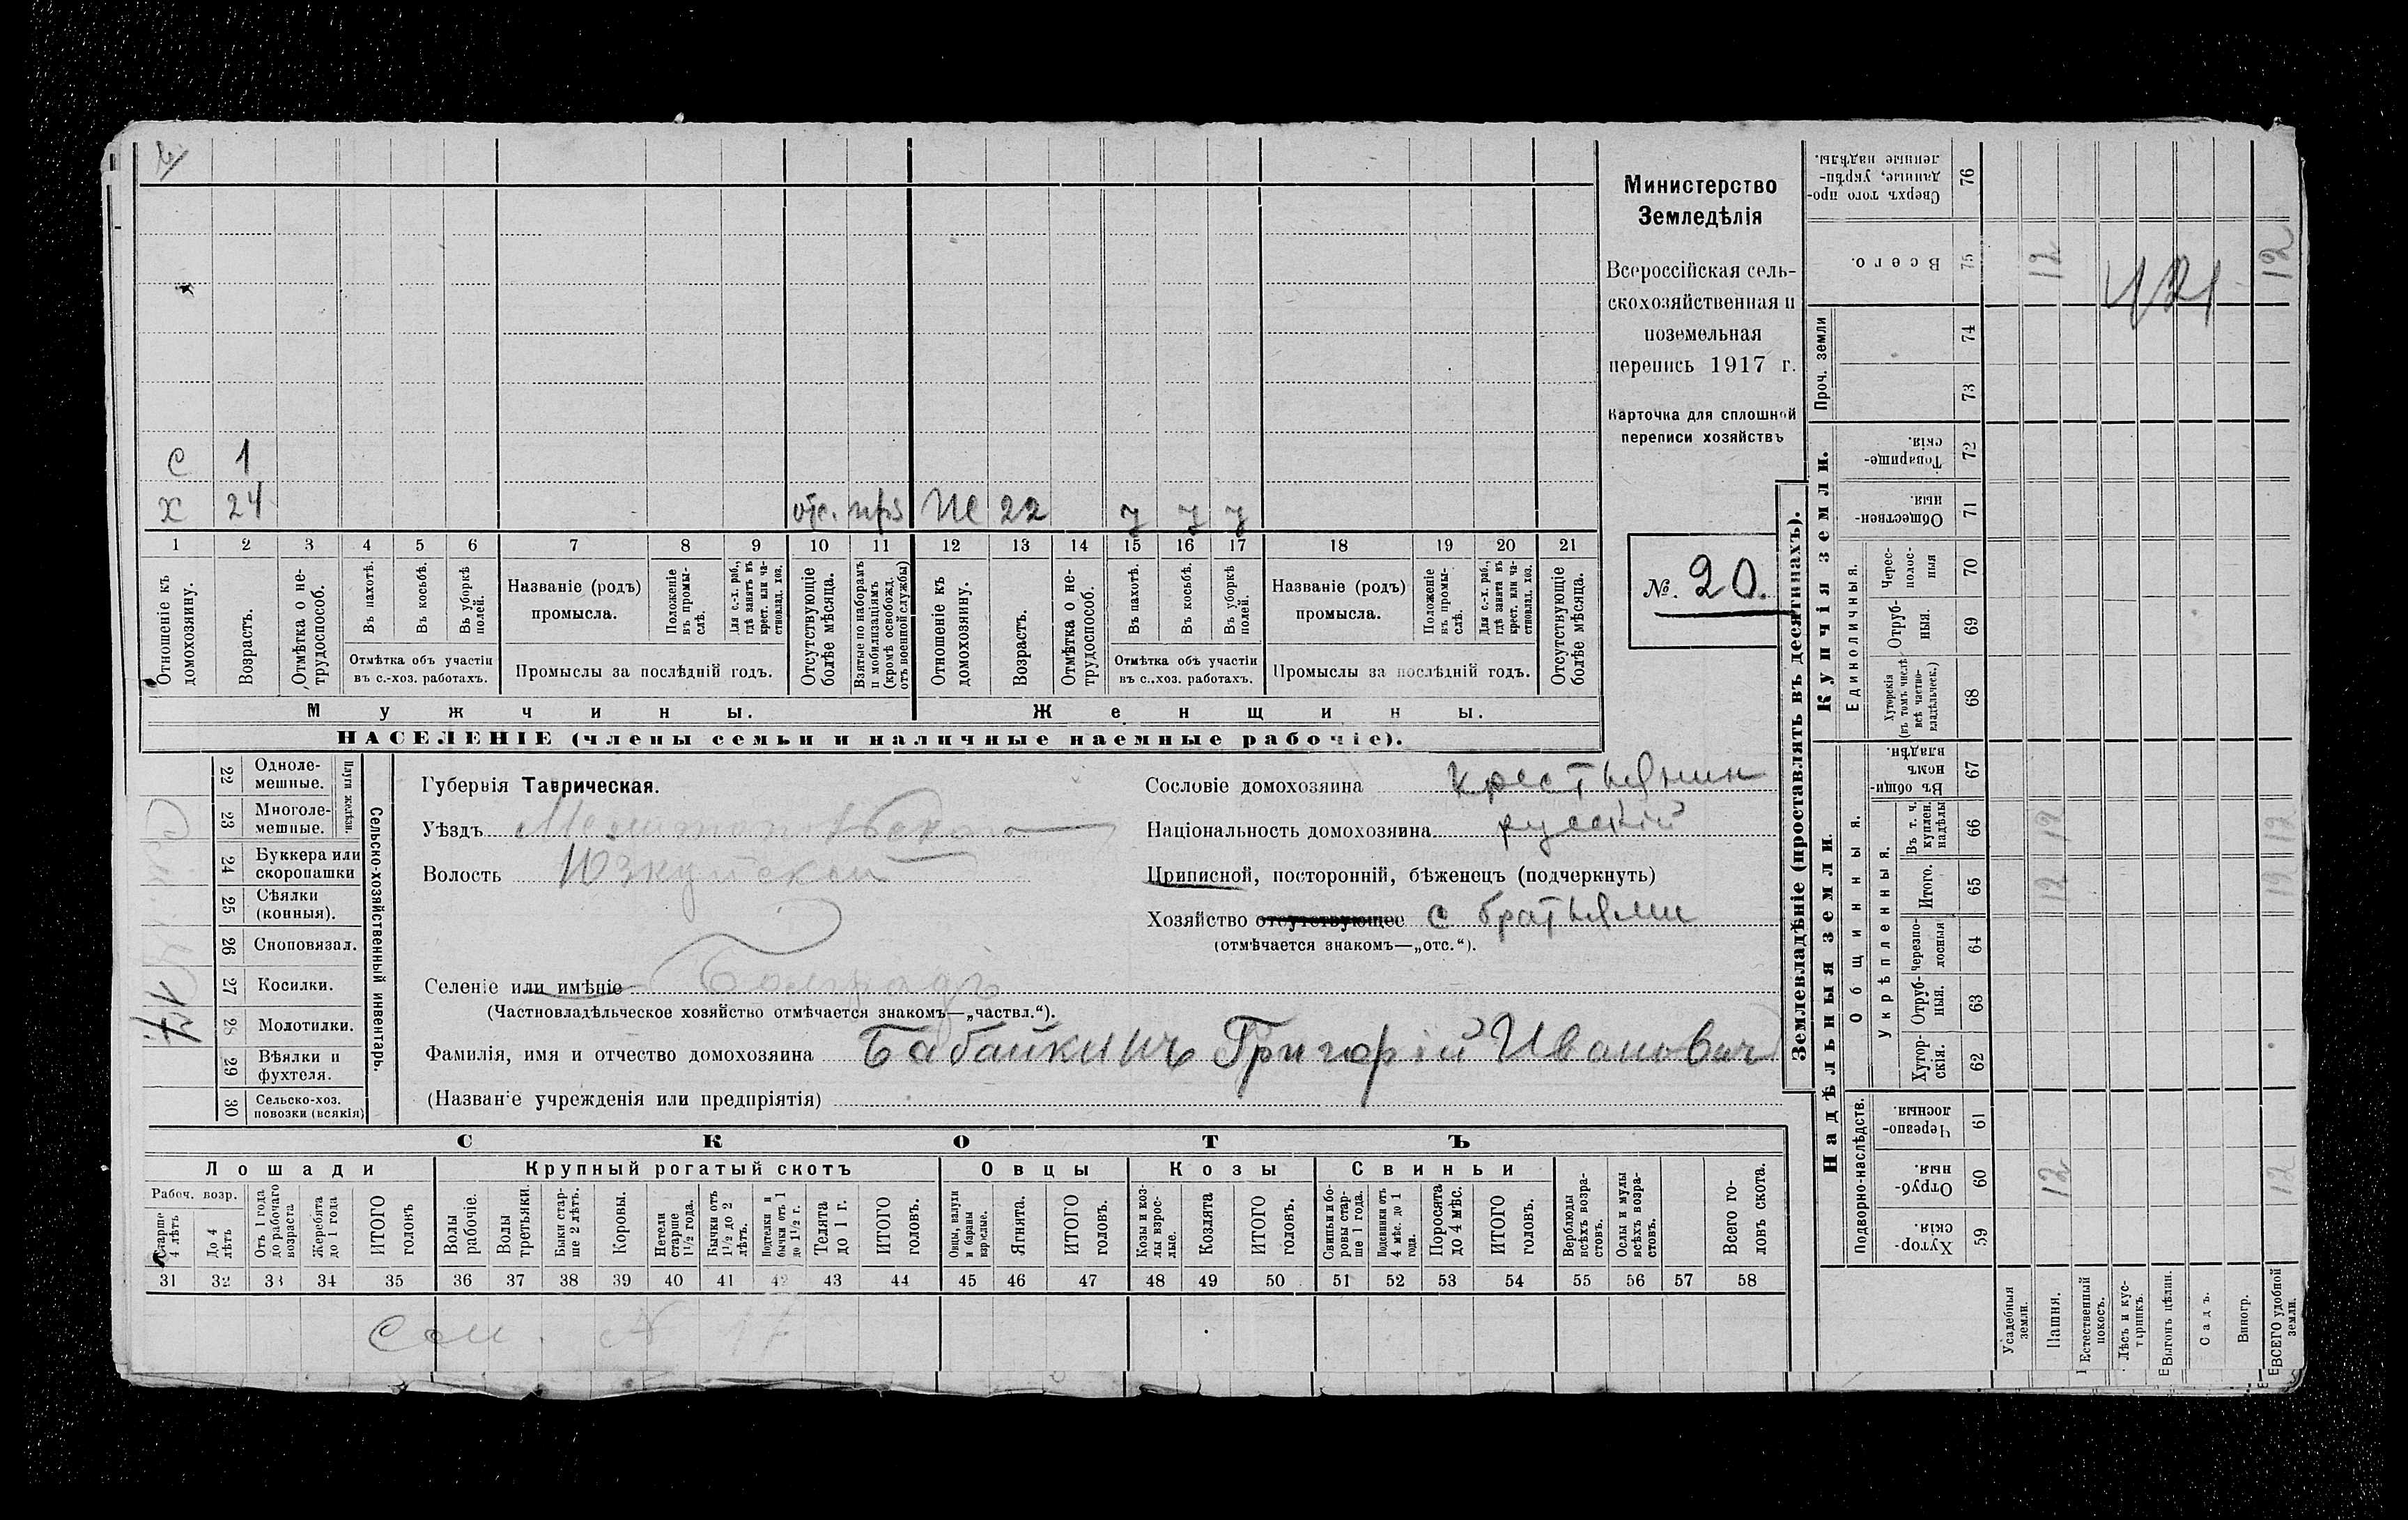 С 1
Х 24 отс. Ж 22 у у у
1 2 3 4 5 6 7 8 9 10 11 12 13 14 15 16 17 18 19 20 21
Отношеніе къ домохозяину.
Возрастъ.
Отмѣтка о не-трудоспособ.
Въ пахотѣ.
Въ косьбѣ.
Въ уборкѣ полей.
Отмѣтка объ участіи
въ с.-хоз. работахъ.
Названіе (родъ)
промысла.
Положеніе въ промы-слѣ.
Для с.-х. раб., гдѣ занятъ въ крест. или ча-стновлад. хоз.
Промыслы за послѣдній годъ.
Отсутствующіе болѣе мѣсяца.
Взятые по наборамъ и мобилизаціямъ (кромѣ освобожд. отъ военной службы)
Отношеніе къ домохозяину.
Возрастъ.
Отмѣтка о не-трудоспособ.
Въ пахотѣ.
Въ косьбѣ.
Въ уборкѣ полей.
Отмѣтка объ участіи
въ с.-хоз. работахъ.
Названіе (родъ)
промысла.
Положеніе въ промы-слѣ.
Для с.-х. раб., гдѣ занята въ крест. или ча-стновлад. хоз.
Промыслы за послѣдній годъ.
Отсутствующіе болѣе мѣсяца.
Мужчины. Женщины.
НАСЕЛЕНІЕ (члены семьи и наличные наемные рабочіе).
Министерство
Земледѣлія
Всероссійская сель-
скохозяйственная и
поземельная
перепись 1917 г.
Карточка для сплошной
переписи хозяйствъ
№. 20.
22 Одноле-мешные.
23 Многоле-мешные.
Плуги желѣзн.
24 Буккера или скоропашки
25 Сѣялки (конныя).
26 Сноповязал.
27 Косилки.
28 Молотилки.
29 Вѣялки и фухтеля.
30 Сельско-хоз. повозки (всякія)
Сельско-хозяйственный инвентарь.
Губернія Таврическая.
Уѣздъ
Волость Юзкуйской
Селеніе или имѣніе Болградъ
(Частновладѣльческое хозяйство отмѣчается знакомъ—„частвл.“).
Фамилія, имя и отчество домохозяина Бабайкинъ Григорій Иванович
(Названіе учрежденія или предпріятія)
Сословіе домохозяина крестьянин
Національность домохозяина русскій
Приписной, посторонній, бѣженецъ (подчеркнуть)
Хозяйство отсутствующее с братьями
(отмѣчается знакомъ—„отс.“).
СКОТЪ
Лошади Крупный рогатый скотъ Овцы Козы Свиньи
Рабоч. возр.
Старше 4 лѣтъ
До 4 лѣтъ
Отъ 1 года до рабочаго возраста
Жеребята до 1 года
ИТОГО головъ
Волы рабочіе.
Волы третьяки.
Быки стар-ше 2 лѣтъ.
Коровы.
Нетели старше 1½ года.
Бычки отъ 1½ до 2 лѣтъ.
Подтелки и бычки отъ 1 до 1½ г.
Телята до 1 г.
ИТОГО головъ.
Овцы, валухи и бараны взрослые.
Ягнята.
ИТОГО головъ.
Козы и коз-лы взрос-лые.
Козлята
ИТОГО головъ.
Свиньи и бо-ровы стар-ше 1 года.
Подсвинки отъ 4 мѣс. до 1 года.
Поросята до 4 мѣс.
ИТОГО головъ.
Верблюды всѣхъ возра-стовъ.
Ослы и мулы всѣхъ возра-стовъ.
Всего го-ловъ скота.
31 32 33 34 35 36 37 38 39 40 41 42 43 44 45 46 47 48 49 50 51 52 53 54 55 56 57 58
См. № 17
Землевладѣніе (проставлять въ десятинахъ).
Купчія земли.
Надѣльныя земли.
Сверхъ того про-данные, укрѣп-ленные надѣлы. 76
Всего. 75 12 12
Проч. земли 74 73
Товарище-скія. 72
Обществен-ныя. 71
Единоличныя.
Черес-полос-ныя 70
Отруб-ныя. 69
Хуторскія (въ томъ числѣ всѣ частно-владѣльческ.) 68
Общинныя.
Въ общин-номъ владѣн. 67
Укрѣпленныя.
Въ т. ч. куплен. надѣлы 66 12 12
Итого. 65 12 12
Черезпо-лосныя 64
Отруб-ныя. 63
Хутор-скія. 62
Подворно-наслѣдств.
Черезпо-лосныя. 61
Отруб-ныя. 60 12 12
Хутор-скія. 59
Усадебныя земли.
Пашня.
Естественный покосъ.
Лѣсъ и кус-тарникъ.
Выгонъ цѣлин.
Садъ.
Виногр.
ВСЕГО удобной земли.